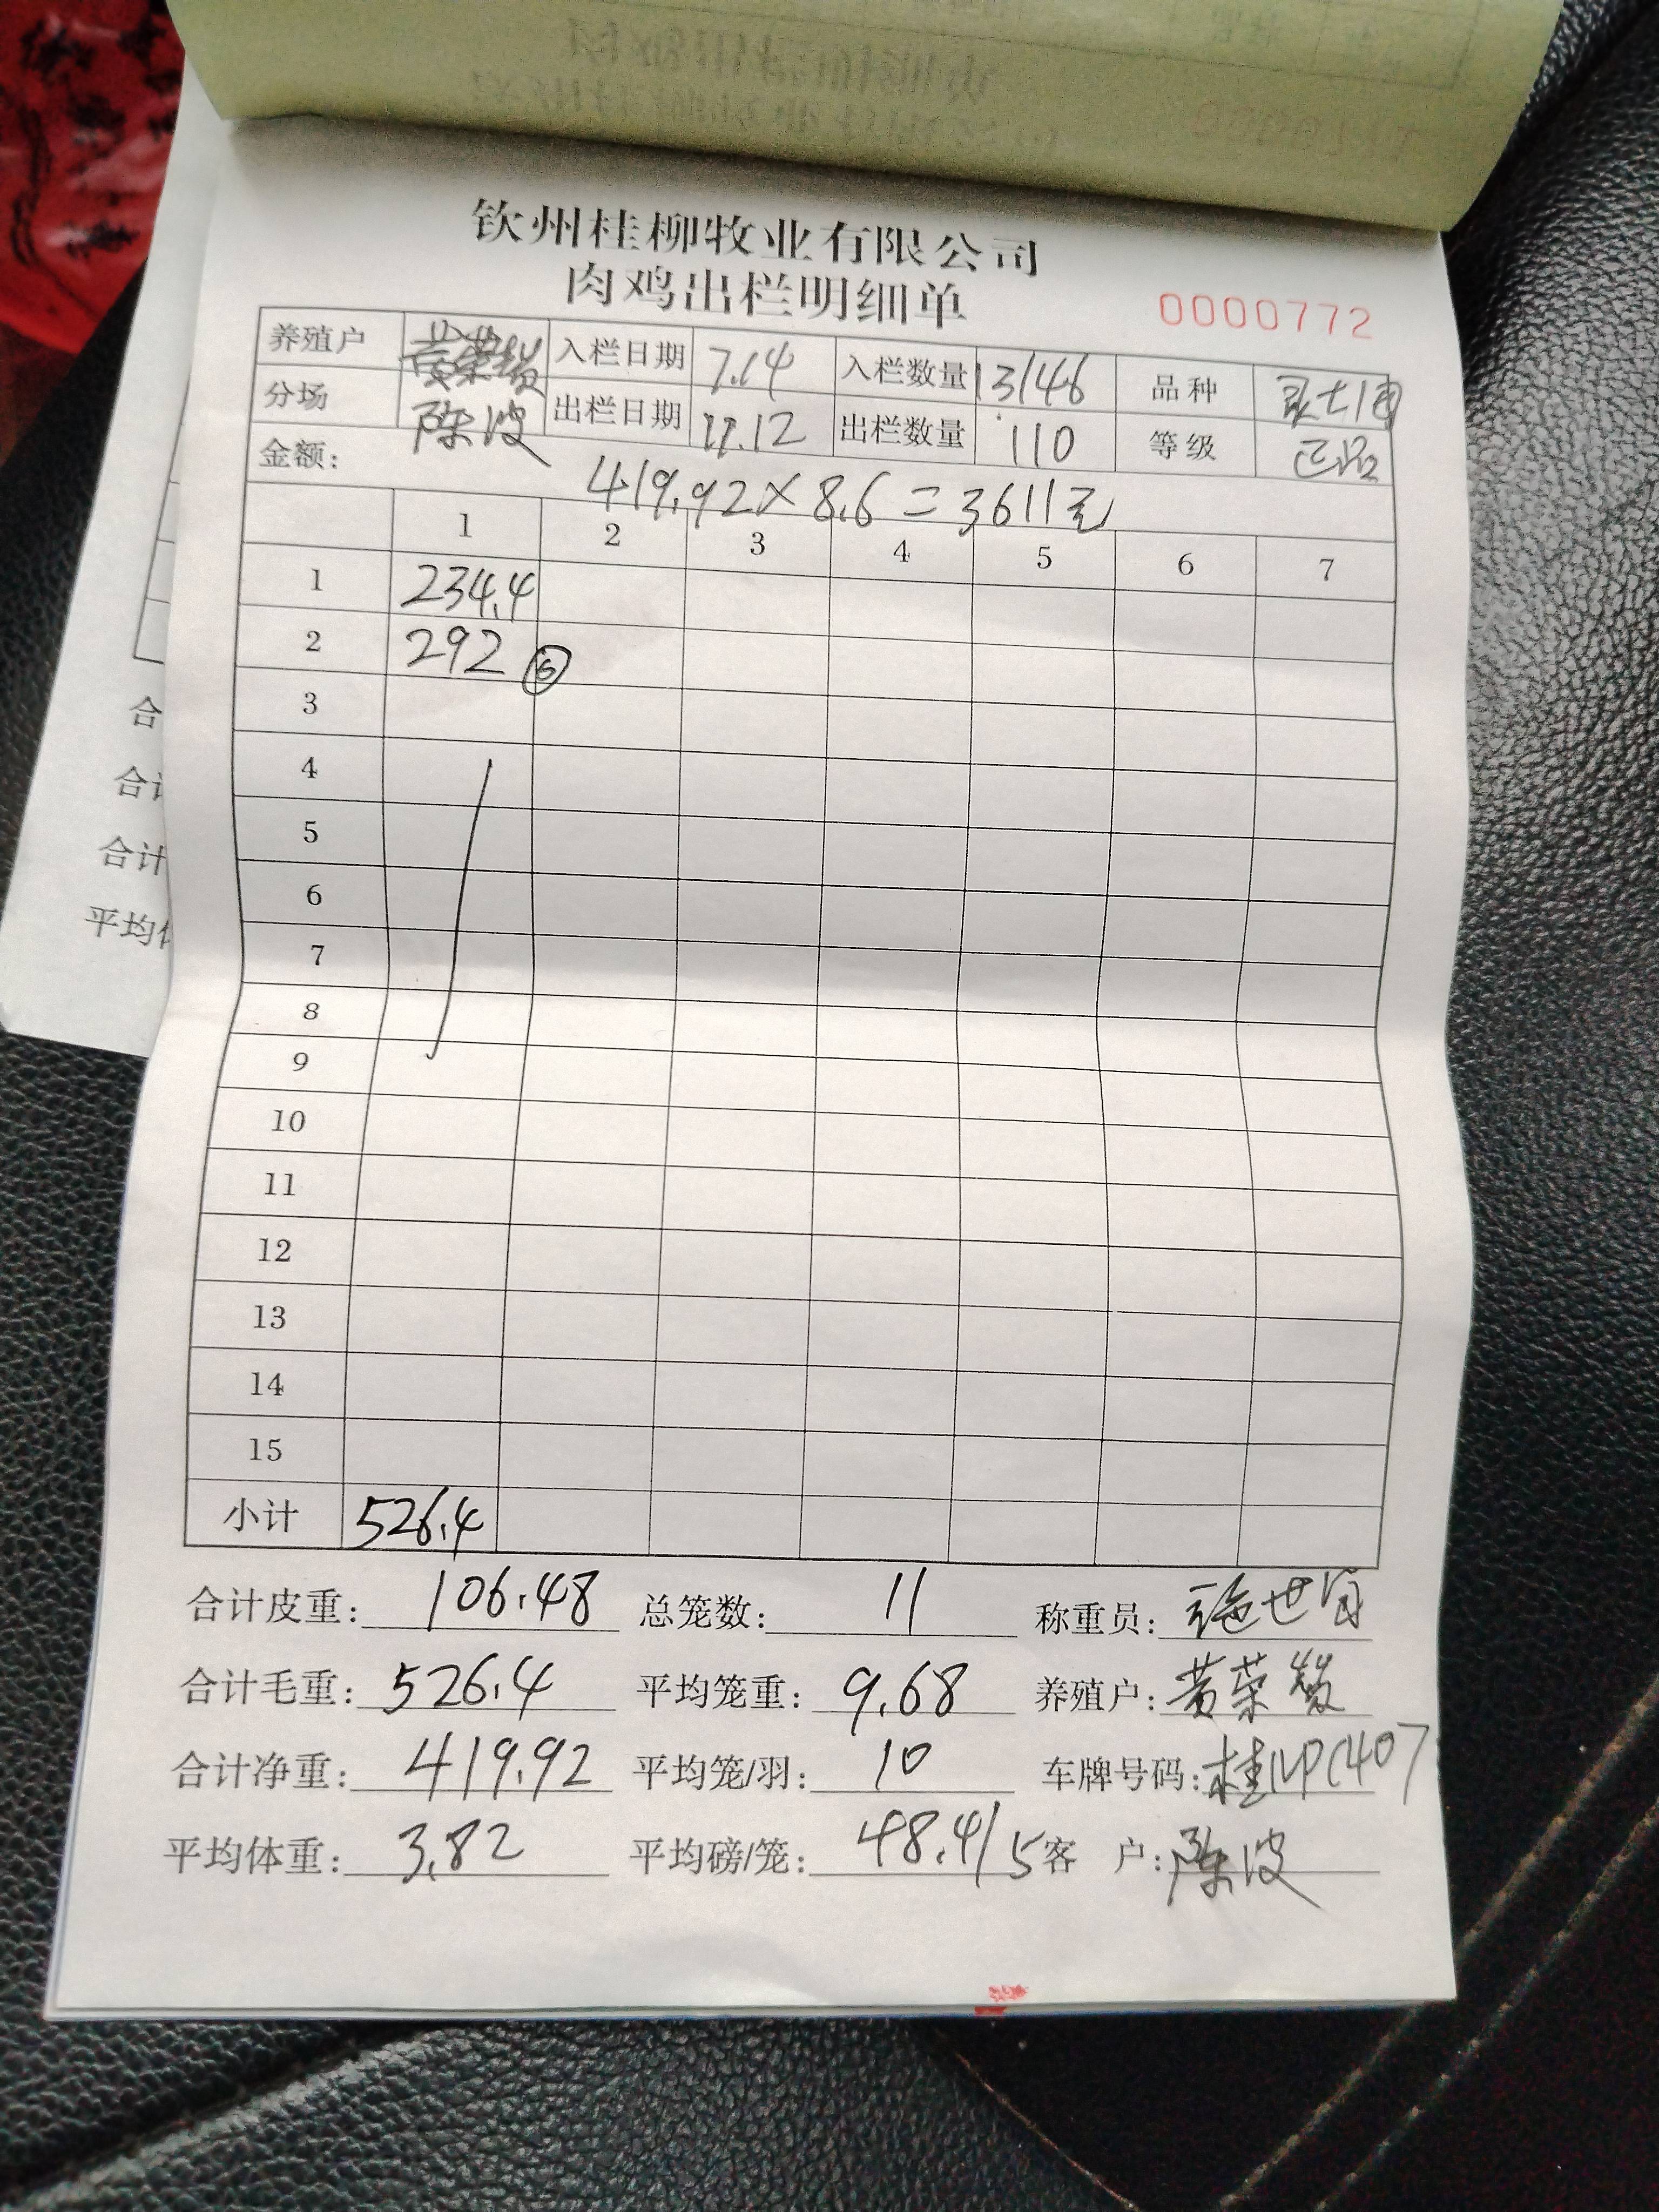 钦州桂柳牧业有限公司
肉鸡出栏明细单
0000772
养殖户 黄荣 入栏日期 7.14 入栏数量 13146 品种
分场 陈波 出栏日期 11.12 出栏数量 110 等级 正品
金额: 419.92×8.6=3611元
1 2 3 4 5 6 7
1 234.4
2 292 ⑥
3
4
5
6
7
8
9
10
11
12
13
14
15
小计 526.4
合计皮重: 106.48 总笼数: 11 称重员:
合计毛重: 526.4 平均笼重: 9.68 养殖户: 黄荣
合计净重: 419.92 平均笼/羽: 10 车牌号码: 桂
平均体重: 3.82 平均磅/笼: 48.4/5 客 户: 陈波
合
合计
合计
平均体